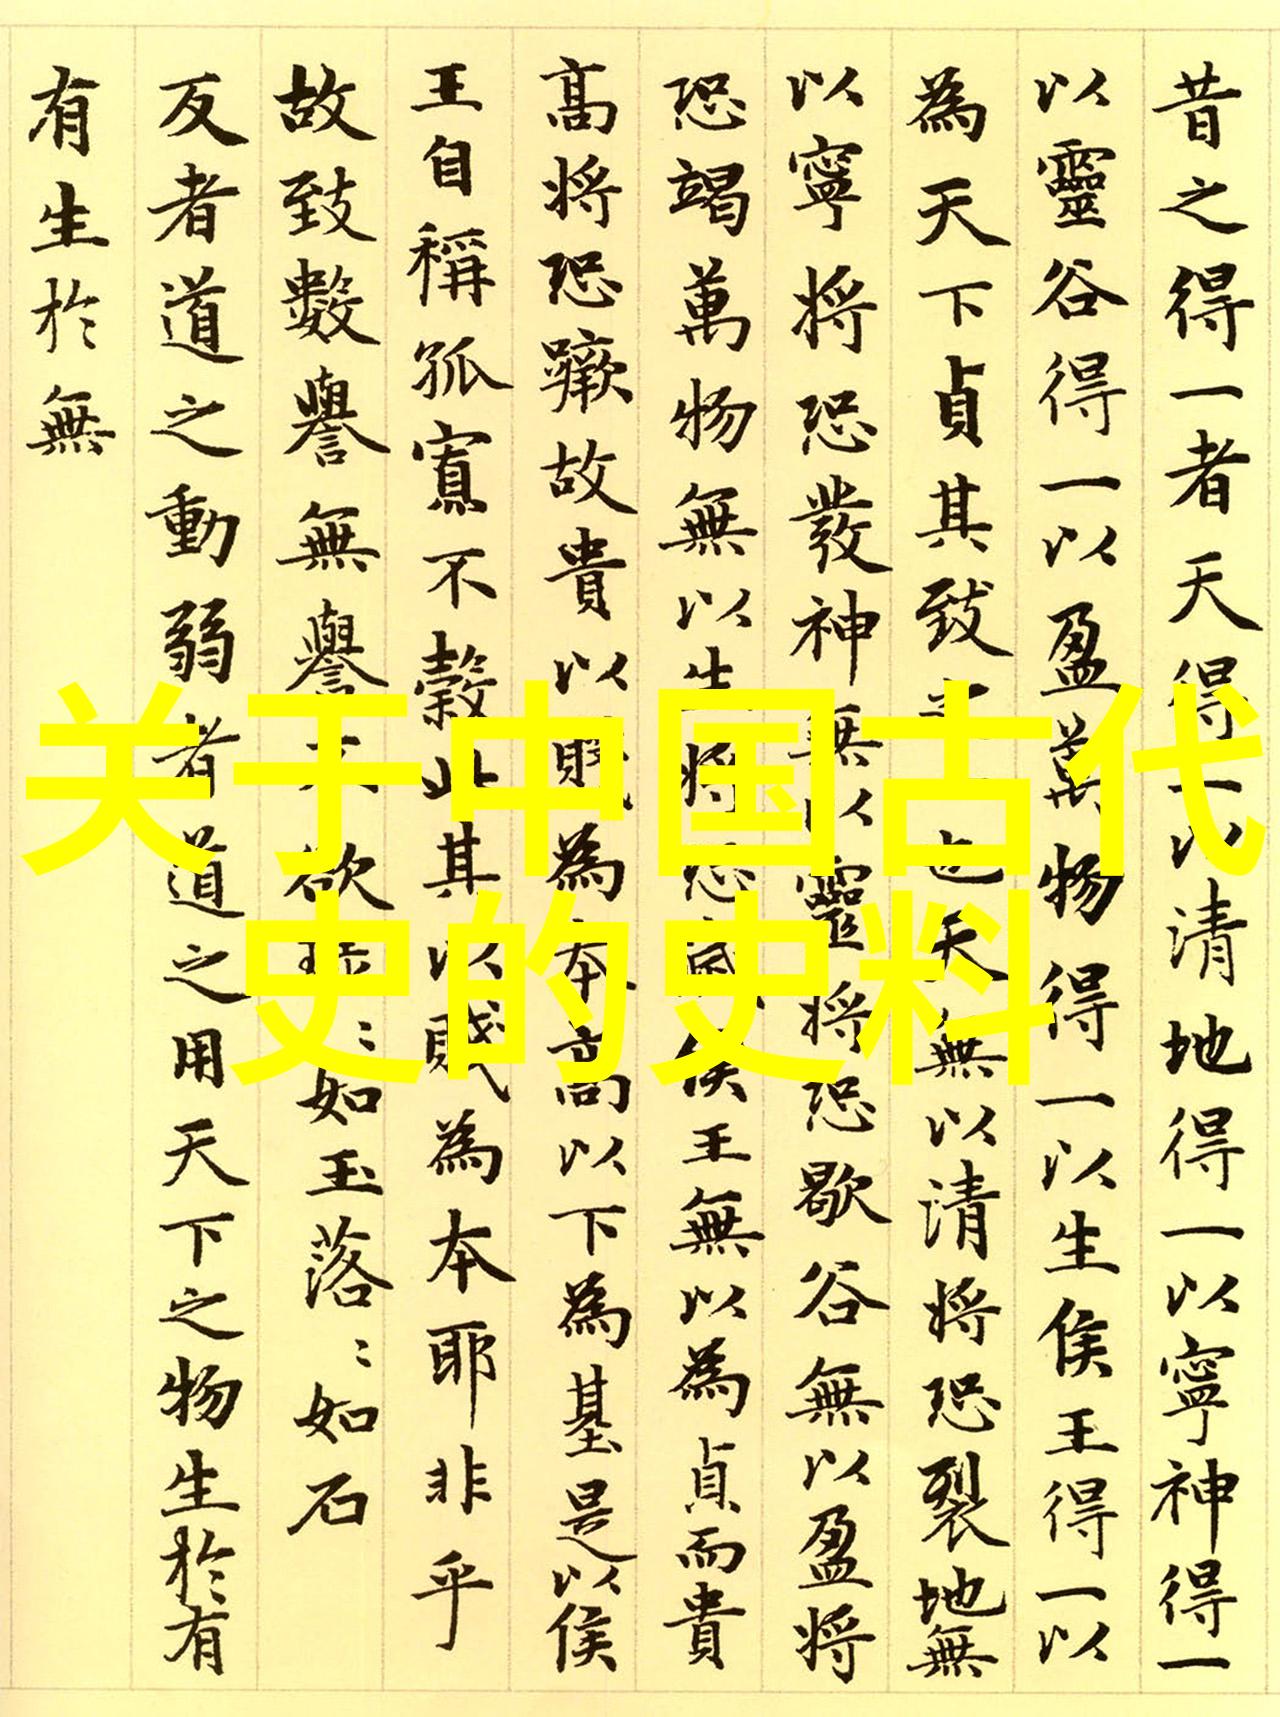 昔之得一者天得一以清地得一以寧神得一
以靈谷得一以盈萬物得一以生侯王得一以
為天下貞其致也天無以清将恐裂地無
以寧将恐發神無以靈将恐歇谷無以盈将
恐竭萬物無以生将恐滅侯王無以為貞而貴
高将恐蹶故貴以賤為本高以下為基是以侯
王自稱孤寡不穀此其以賤為本耶非乎
故致數譽無譽不欲琭〻如玉落〻如石
反者道之動弱者道之用天下之物生於有
有生於無
关于中国古代
史的史料